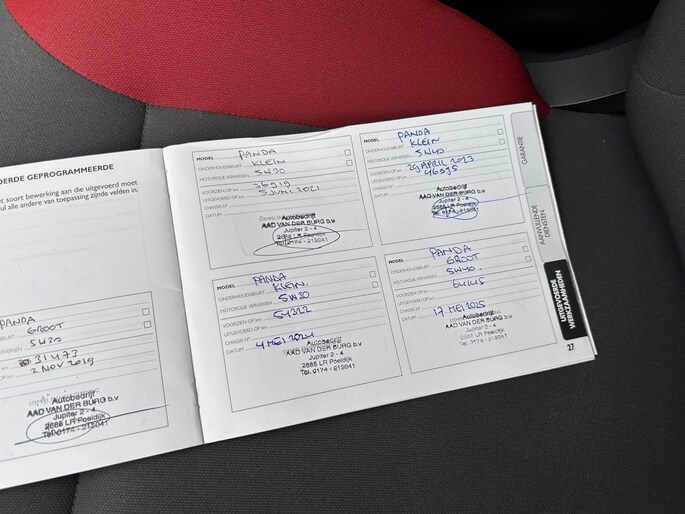 DERDE GEPROGRAMMEERDE
et soort bewerking aan die uitgevoerd moet
ul alle andere van toepassing zijnde velden in.
PANDA
GROOT
5W30
31473
2 NOV 2019
Autobedrijf
AAD VAN DER BURG b.v
Jupiter 2 - 4
2685 LR Poeldijk
Tel. 0174 - 213041
MODEL PANDA
ONDERHOUDSBEURT KLEIN
MOTOROLIE VERVERSEN 5W30
VOORZIEN OP km 36919
UITGEVOERD OP km 5 JUNI 2021
CHASSIS Nº
DATUM
Autobedrijf
AAD VAN DER BURG b.v
Jupiter 2 - 4
2685 LR Poeldijk
Tel. 0174 - 213041
MODEL PANDA
ONDERHOUDSBEURT KLEIN
MOTOROLIE VERVERSEN 5W40
VOORZIEN OP km 29 APRIL 2023
UITGEVOERD OP km 46595
CHASSIS Nº
DATUM
Autobedrijf
AAD VAN DER BURG b.v
Jupiter 2 - 4
2685 LR Poeldijk
Tel. 0174 - 213041
MODEL PANDA
ONDERHOUDSBEURT KLEIN.
MOTOROLIE VERVERSEN 5W30
VOORZIEN OP km
UITGEVOERD OP km 54322
CHASSIS Nº
DATUM 4 MEI 2024
Autobedrijf
AAD VAN DER BURG b.v
Jupiter 2 - 4
2685 LR Poeldijk
Tel. 0174 - 213041
MODEL PANDA
ONDERHOUDSBEURT GROOT
MOTOROLIE VERVERSEN 5W40.
VOORZIEN OP km
UITGEVOERD OP km
CHASSIS Nº
DATUM 17 MEI 2025
Autobedrijf
AAD VAN DER BURG b.v
Jupiter 2 - 4
2685 LR Poeldijk
Tel. 0174 - 213041
GARANTIE
AANVULLENDE
DIENSTEN
UITGEVOERDE
WERKZAAMHEDEN
27